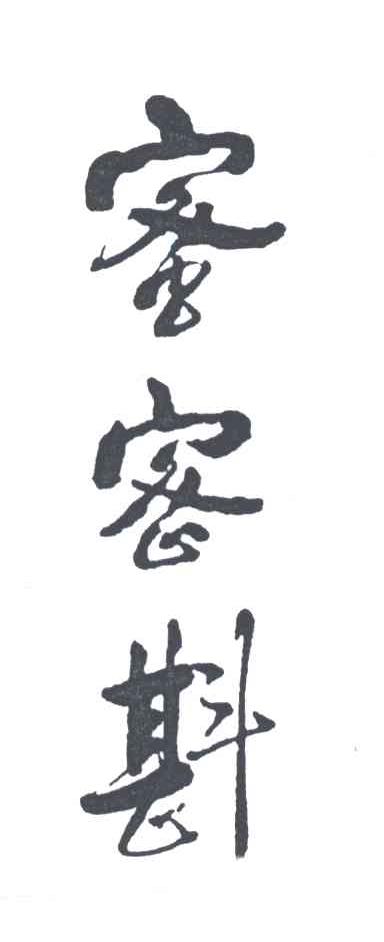 蜜密斟